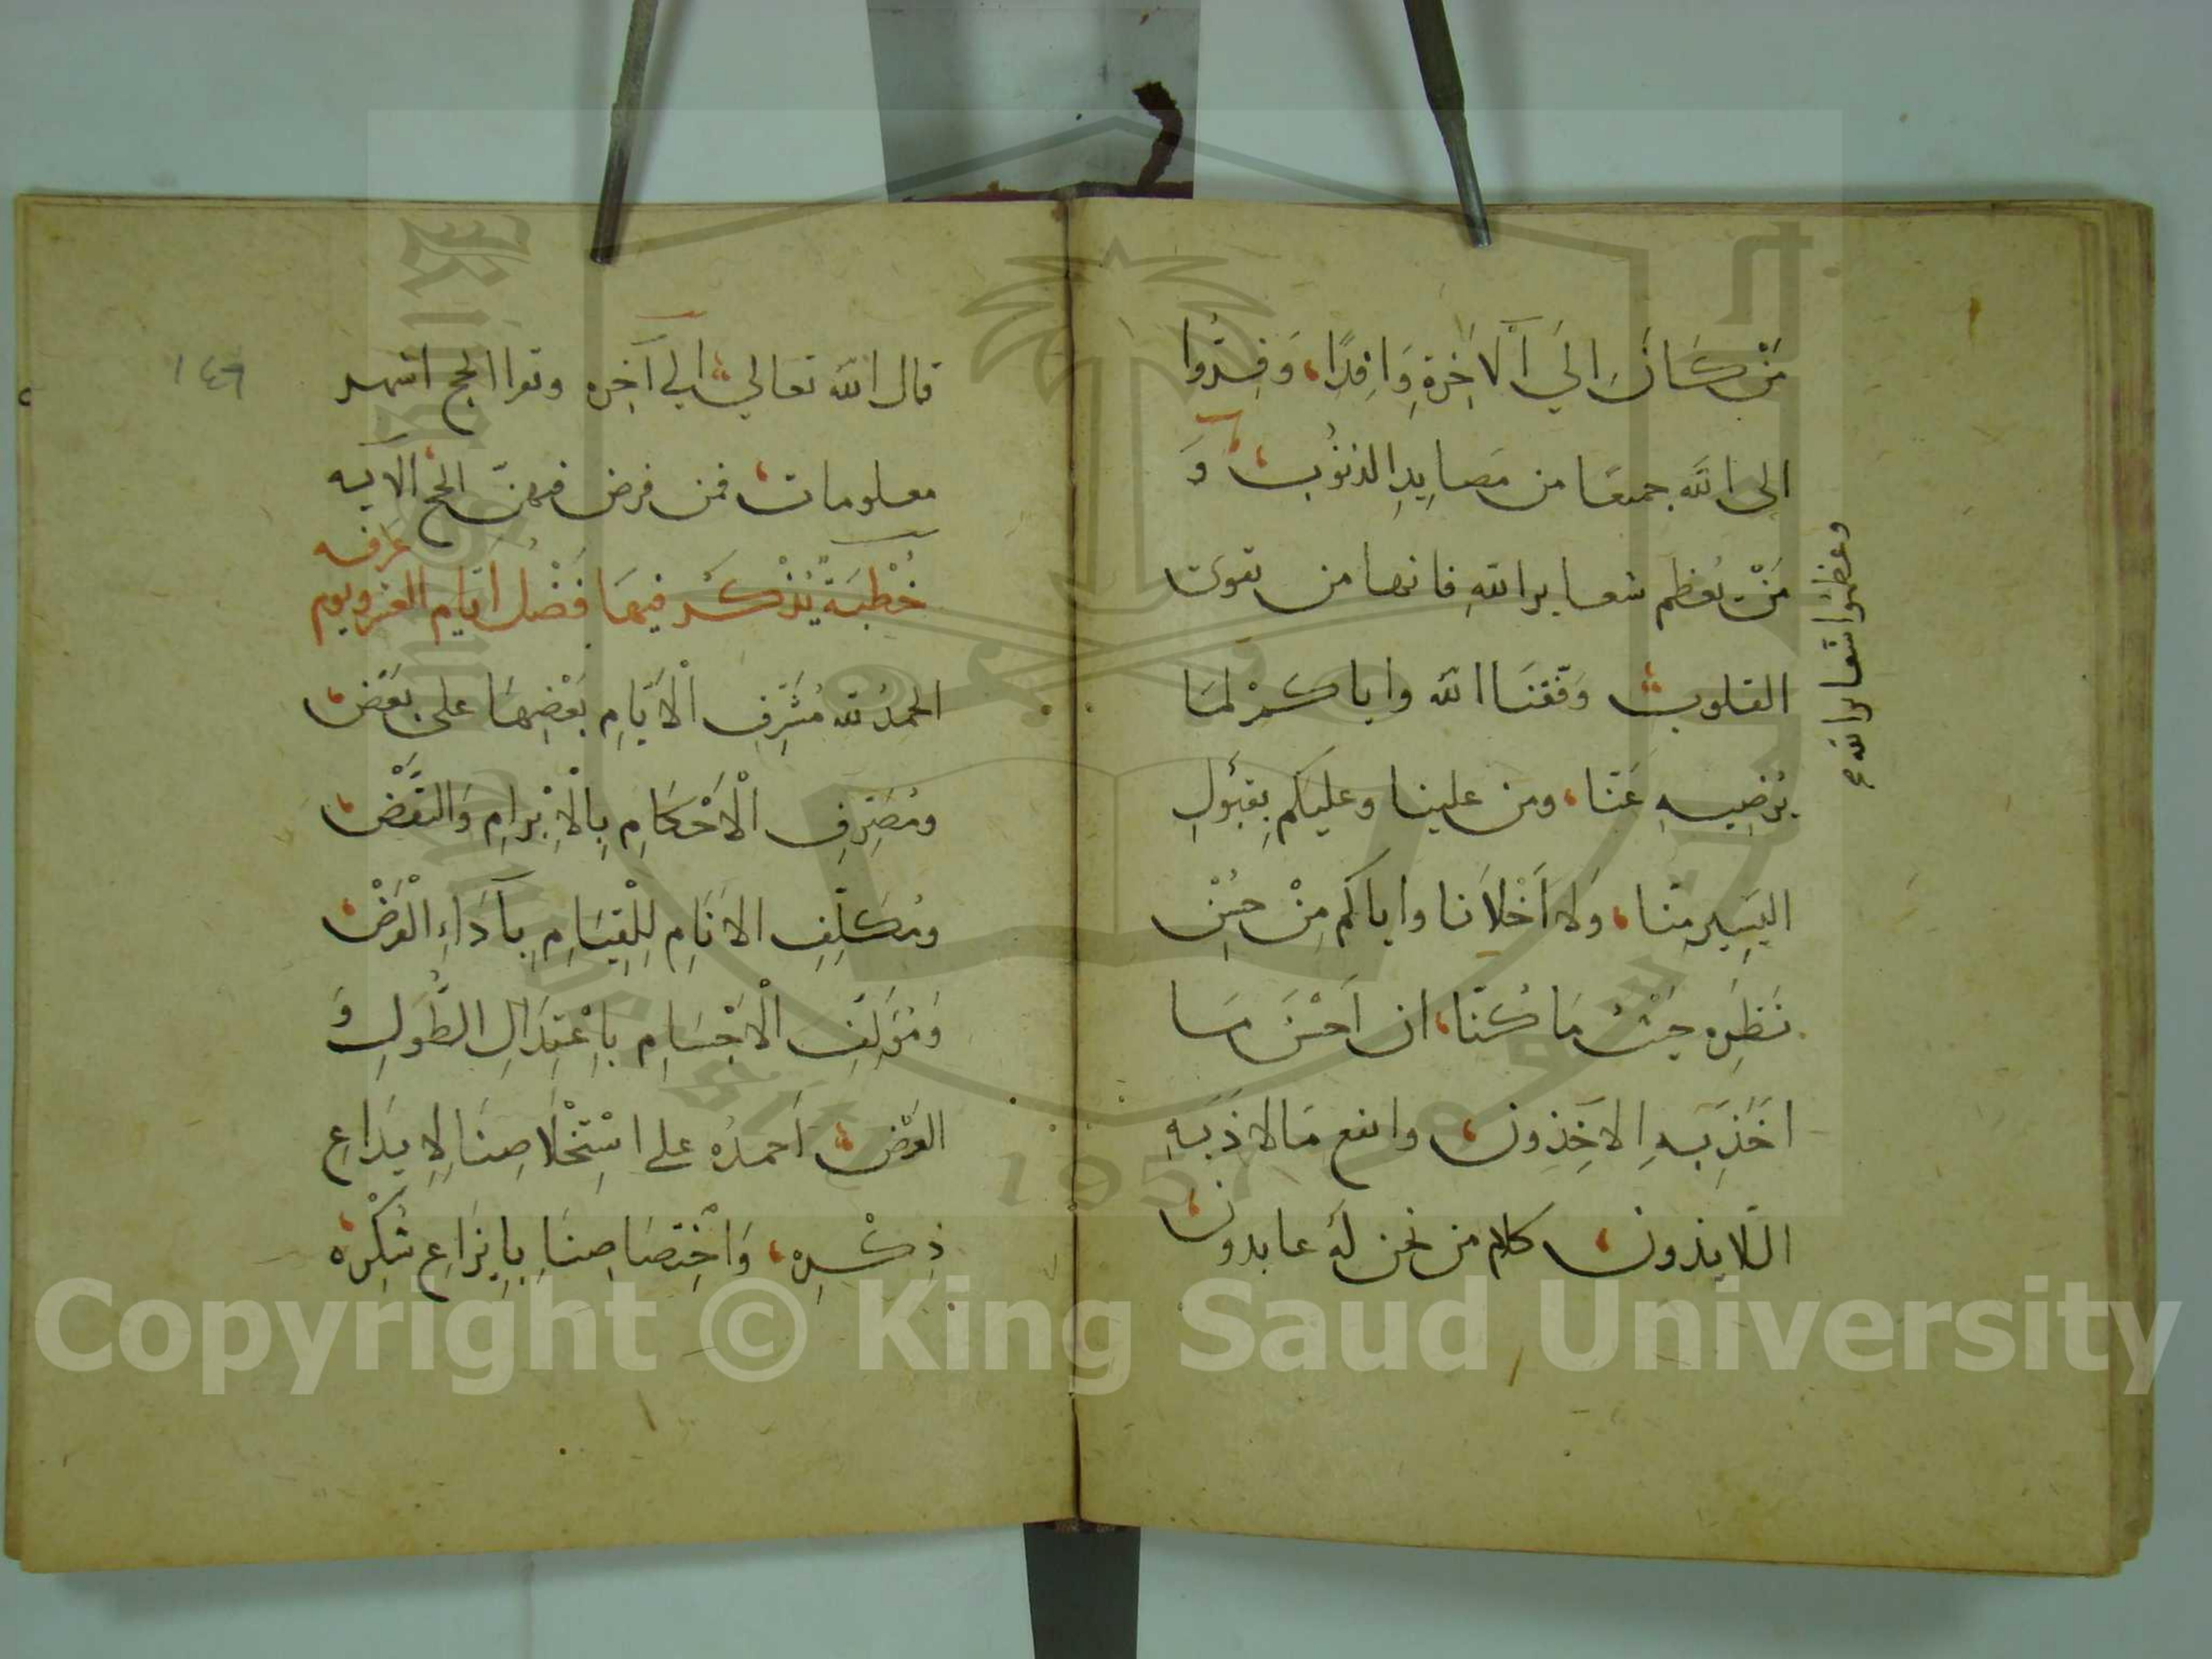 مَنْ كَانَ اِلَي اَلْآخِرَةِ وَافِدًا، وَفِرُّوا
الى الله جميعًا من مَصايِدِ الذنُوُب، وَ
مَنْ يُعظم شعاير اللهِ فانها من تقوَى
القلوب وَفّقنَا الله واياكمْ لمَا
يُرْضِيهِ عَنّا، ومن علينا وعليكم بِقَبُولِ
اليَسِيرِ مِنّا، وَلا اَخْلاَنا واياكم مِنْ حُسْنِ
نَظَرِه حَيْثُ مَا كُنّا، ان اَحْسَنَ مَا
اَخَذَ بَهِ الاخِذونَ، وانفع مَا لاذَ بَهِ
اللّايذون، كلام من نحن لَهُ عابدون،
وعَظّموُا شعاير الله صح
١٤٦
قال الله تعالي الي آخِره وقرا الحج اشهر
معلومات، فمن فرض فيهنّ الحج الآيه
خُطْبَةٌ يُذْكَرُ فيهَا فَضْلُ اَيّام العَشر ويوم
عَرَفه
الحمدُ لله مُشَرِّفِ الْاَيّامِ بَعْضِهَا على بَعْضٍ،
ومُصَرِّفِ الْاَحْكَامِ بِالْاِبْرامِ وَالنَقْضِ،
ومُكَلِّفِ الانَامِ لِلْقِيَامِ بِآدَاءِ الْفَرْضِ،
وَمُؤَلِّفِ الْاَجْسَامِ بِاِعْتِدَالِ الطُّولِ وَ
العَرْضِ، اَحمدُه على اسْتِخْلَاصِنَا لِاِيدَاعِ
ذِكْرِهِ، وَاخْتِصَاصِنَا بِاِيزَاعِ شُكْرِه،
Copyright © King Saud University
1957